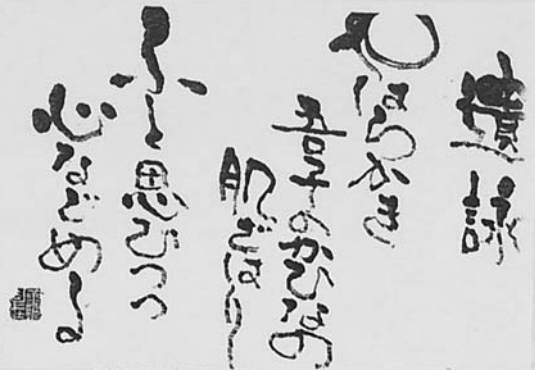 遺詠
やはらかき
吾子のかひなの
肌ざはり
ふと思ひつつ
心なごめる